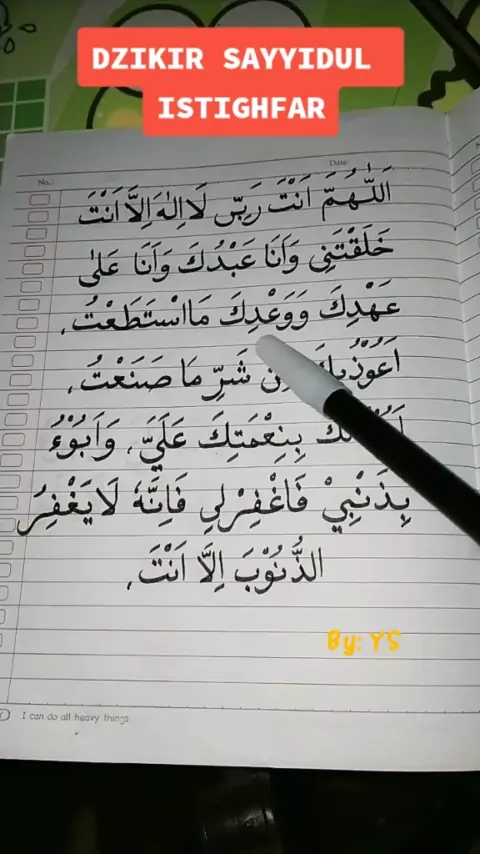 DZIKIR SAYYIDUL
ISTIGHFAR
No.:
Date:
اَللّٰهُمَّ اَنْتَ رَبِّي لَا اِلٰهَ اِلَّا اَنْتَ
خَلَقْتَنِي وَاَنَا عَبْدُكَ وَاَنَا عَلٰى
عَهْدِكَ وَوَعْدِكَ مَااسْتَطَعْتُ،
اَعُوْذُبِكَ مِنْ شَرِّ مَا صَنَعْتُ،
بِنِعْمَتِكَ عَلَيَّ، وَاَبُوْءُ
بِذَنْبِيْ فَاغْفِرْلِي فَاِنَّهُ لَايَغْفِرُ
الذُّنُوْبَ اِلَّا اَنْتَ،
By: YS
I can do all heavy things